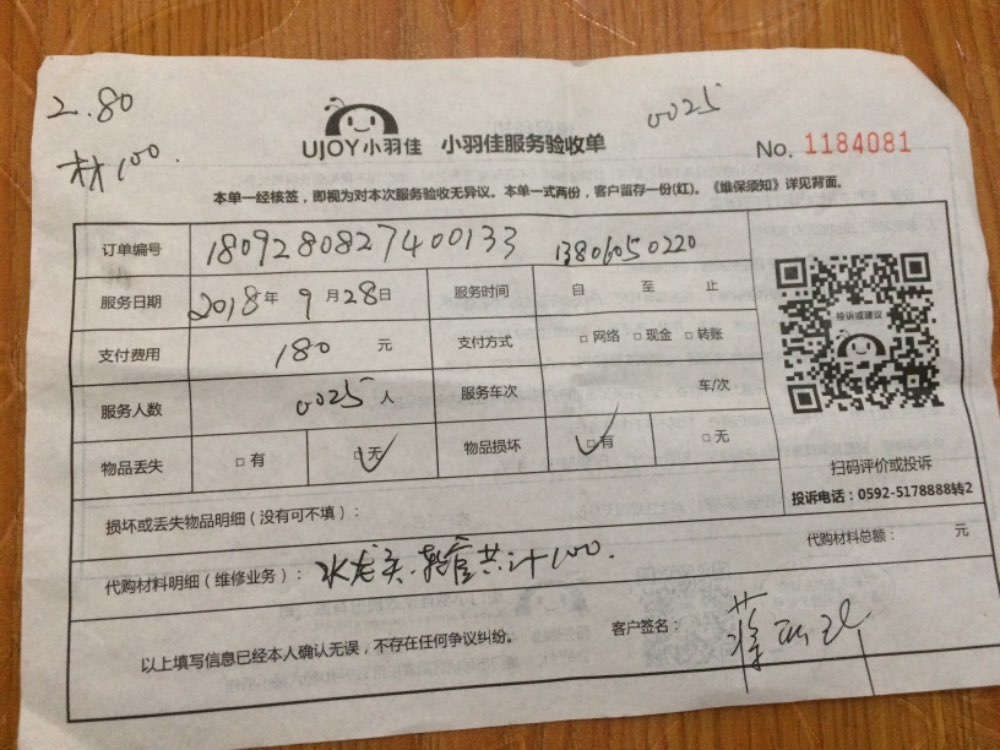 2.80
0025
材100.
UJOY小羽佳 小羽佳服务验收单
No. 1184081
本单一经核签，即视为对本次服务验收无异议。本单一式两份，客户留存一份(红)。《维保须知》详见背面。
订单编号 1809280827400133 13806050220
服务日期 2018年9月28日 服务时间 自 至 止
支付费用 180 元 支付方式 □网络 □现金 □转账
投诉或建议
服务人数 0025 人 服务车次 车/次
物品丢失 □有 □无 物品损坏 □有 □无
扫码评价或投诉
投诉电话：0592-5178888转2
损坏或丢失物品明细（没有可不填）：
代购材料明细（维修业务）：水龙头.软管共计100.
代购材料总额： 元
以上填写信息已经本人确认无误，不存在任何争议纠纷。
客户签名：